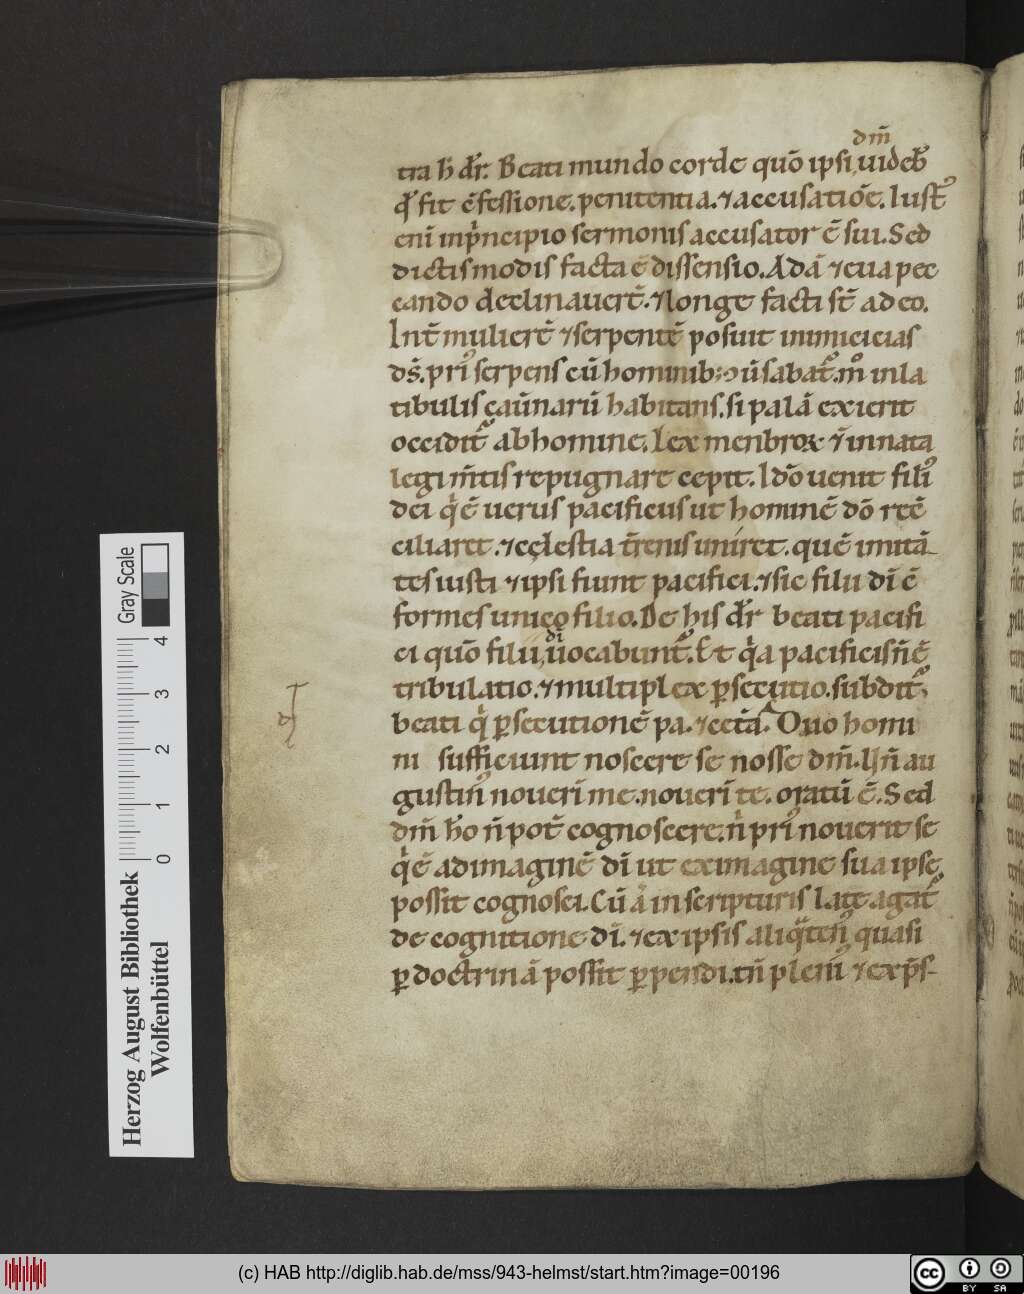 dm̄
tra h̄ dr̄. Beati mundo corde quō ipsi uideb̄
q̄ fit ɔ̄fessione. penitentia. ⁊ accusatiōe. Iust᷒
eni īnp̄ncipio sermonis accusator ē sui. Sed
dictis modis facta ē dissensio. Adā ⁊ eua pec
cando declinauert̄. ⁊ longe facti st̄ ad eo.
Int̄ mulierē ⁊ serpentē posuit inimicicias
ds̄. pri᷒ serpens cū hominib; ɔūsabat᷒. m̊ in la
tibulis cauernarū habitans. si palā exierit
occidit᷒ ab homine. Lex menbroꝝ ⁊ innata
legi m̄tis repugnare cepit. Idō uenit fili᷒
dei qͥ ē uerus pacificus ut hominē dō recō
ciliaret. ⁊ cęlestia t̄renis uniret. quē imitā
tes iusti ⁊ ipsi fiunt pacifici. ⁊ sic filii dī ɔ̄
formes unico filio. De his dr̄ beati pacifi
di
ci quō filii uocabunt᷒. Et qͥa pacificis n̄ ē
tribulatio. ⁊ multiplex ꝑsecutio. subdit᷒.
beati qͥ ꝑsecutionē pa. ⁊ cetā. Duo homi
ni sufficiunt noscere se nosse dm̄. Hn̄ au
gustin᷒ nouerī me. nouerī te. oratū ē. Sed
dm̄ ho n̄ pot̄ cognoscere. nͥ pri᷒ nouerit se
qͥ ē ad imaginē dī ut ex imagine sua ipse
possit cognosci. Cū aͥ in scripturis late agat᷒
de cognitione dī. ⁊ ex ipsis aliqͣten᷒ quasi
ꝑ doctrinā possit ꝑpendi. tn̄ pleni᷒ ⁊ exp̄s-
Herzog August Bibliothek
Wolfenbüttel
0 1 2 3 4
Gray Scale
(c) HAB http://diglib.hab.de/mss/943-helmst/start.htm?image=00196
cc BY SA